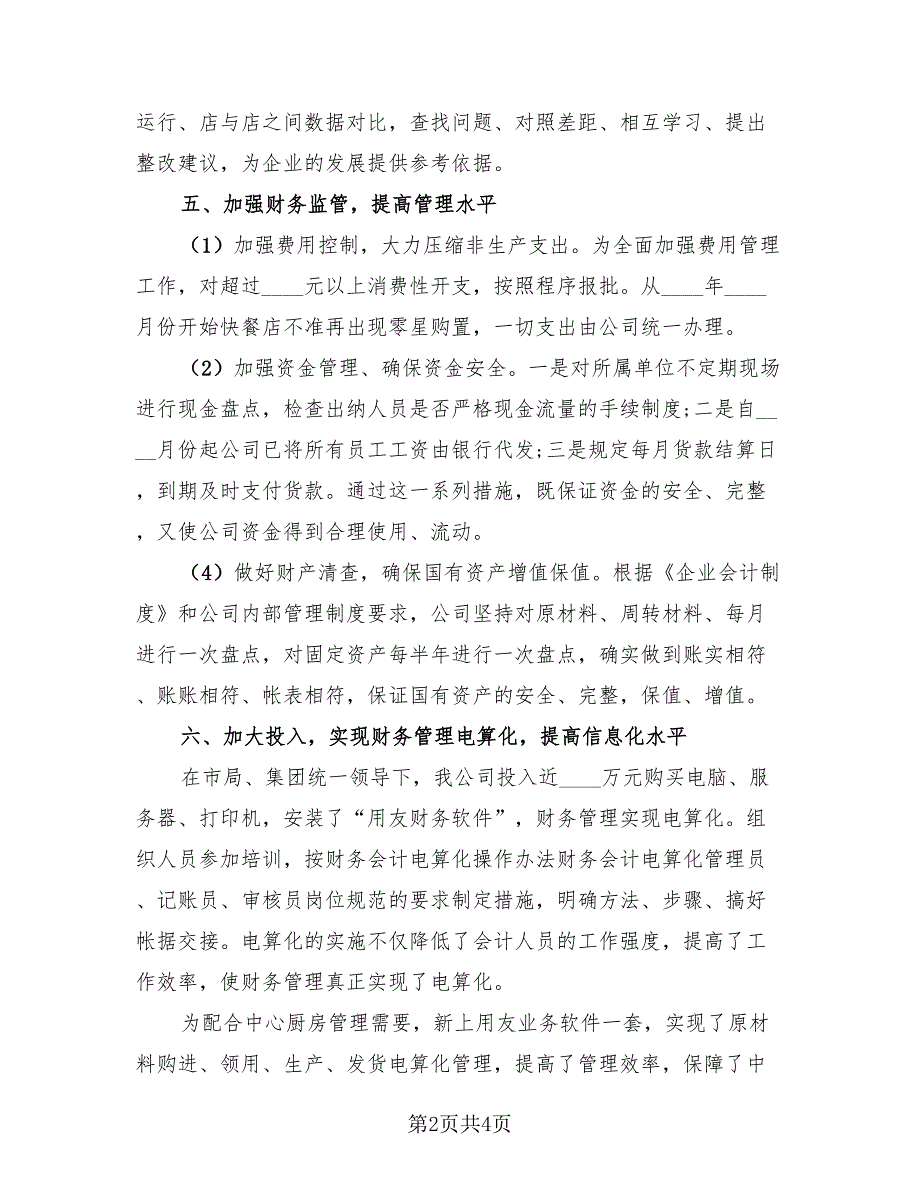 运行、店与店之间数据对比，查找问题、对照差距、相互学习、提出
整改建议，为企业的发展提供参考依据。
五、加强财务监管，提高管理水平
（1）加强费用控制，大力压缩非生产支出。为全面加强费用管理
工作，对超过____元以上消费性开支，按照程序报批。从____年____
月份开始快餐店不准再出现零星购置，一切支出由公司统一办理。
（2）加强资金管理、确保资金安全。一是对所属单位不定期现场
进行现金盘点，检查出纳人员是否严格现金流量的手续制度;二是自__
__月份起公司已将所有员工工资由银行代发;三是规定每月货款结算日
，到期及时支付货款。通过这一系列措施，既保证资金的安全、完整
，又使公司资金得到合理使用、流动。
（4）做好财产清查，确保国有资产增值保值。根据《企业会计制
度》和公司内部管理制度要求，公司坚持对原材料、周转材料、每月
进行一次盘点，对固定资产每半年进行一次盘点，确实做到账实相符
、账账相符、帐表相符，保证国有资产的安全、完整，保值、增值。
六、加大投入，实现财务管理电算化，提高信息化水平
在市局、集团统一领导下，我公司投入近____万元购买电脑、服
务器、打印机，安装了“用友财务软件”，财务管理实现电算化。组
织人员参加培训，按财务会计电算化操作办法财务会计电算化管理员
、记账员、审核员岗位规范的要求制定措施，明确方法、步骤、搞好
帐据交接。电算化的实施不仅降低了会计人员的工作强度，提高了工
作效率，使财务管理真正实现了电算化。
为配合中心厨房管理需要，新上用友业务软件一套，实现了原材
料购进、领用、生产、发货电算化管理，提高了管理效率，保障了中
第2页共4页